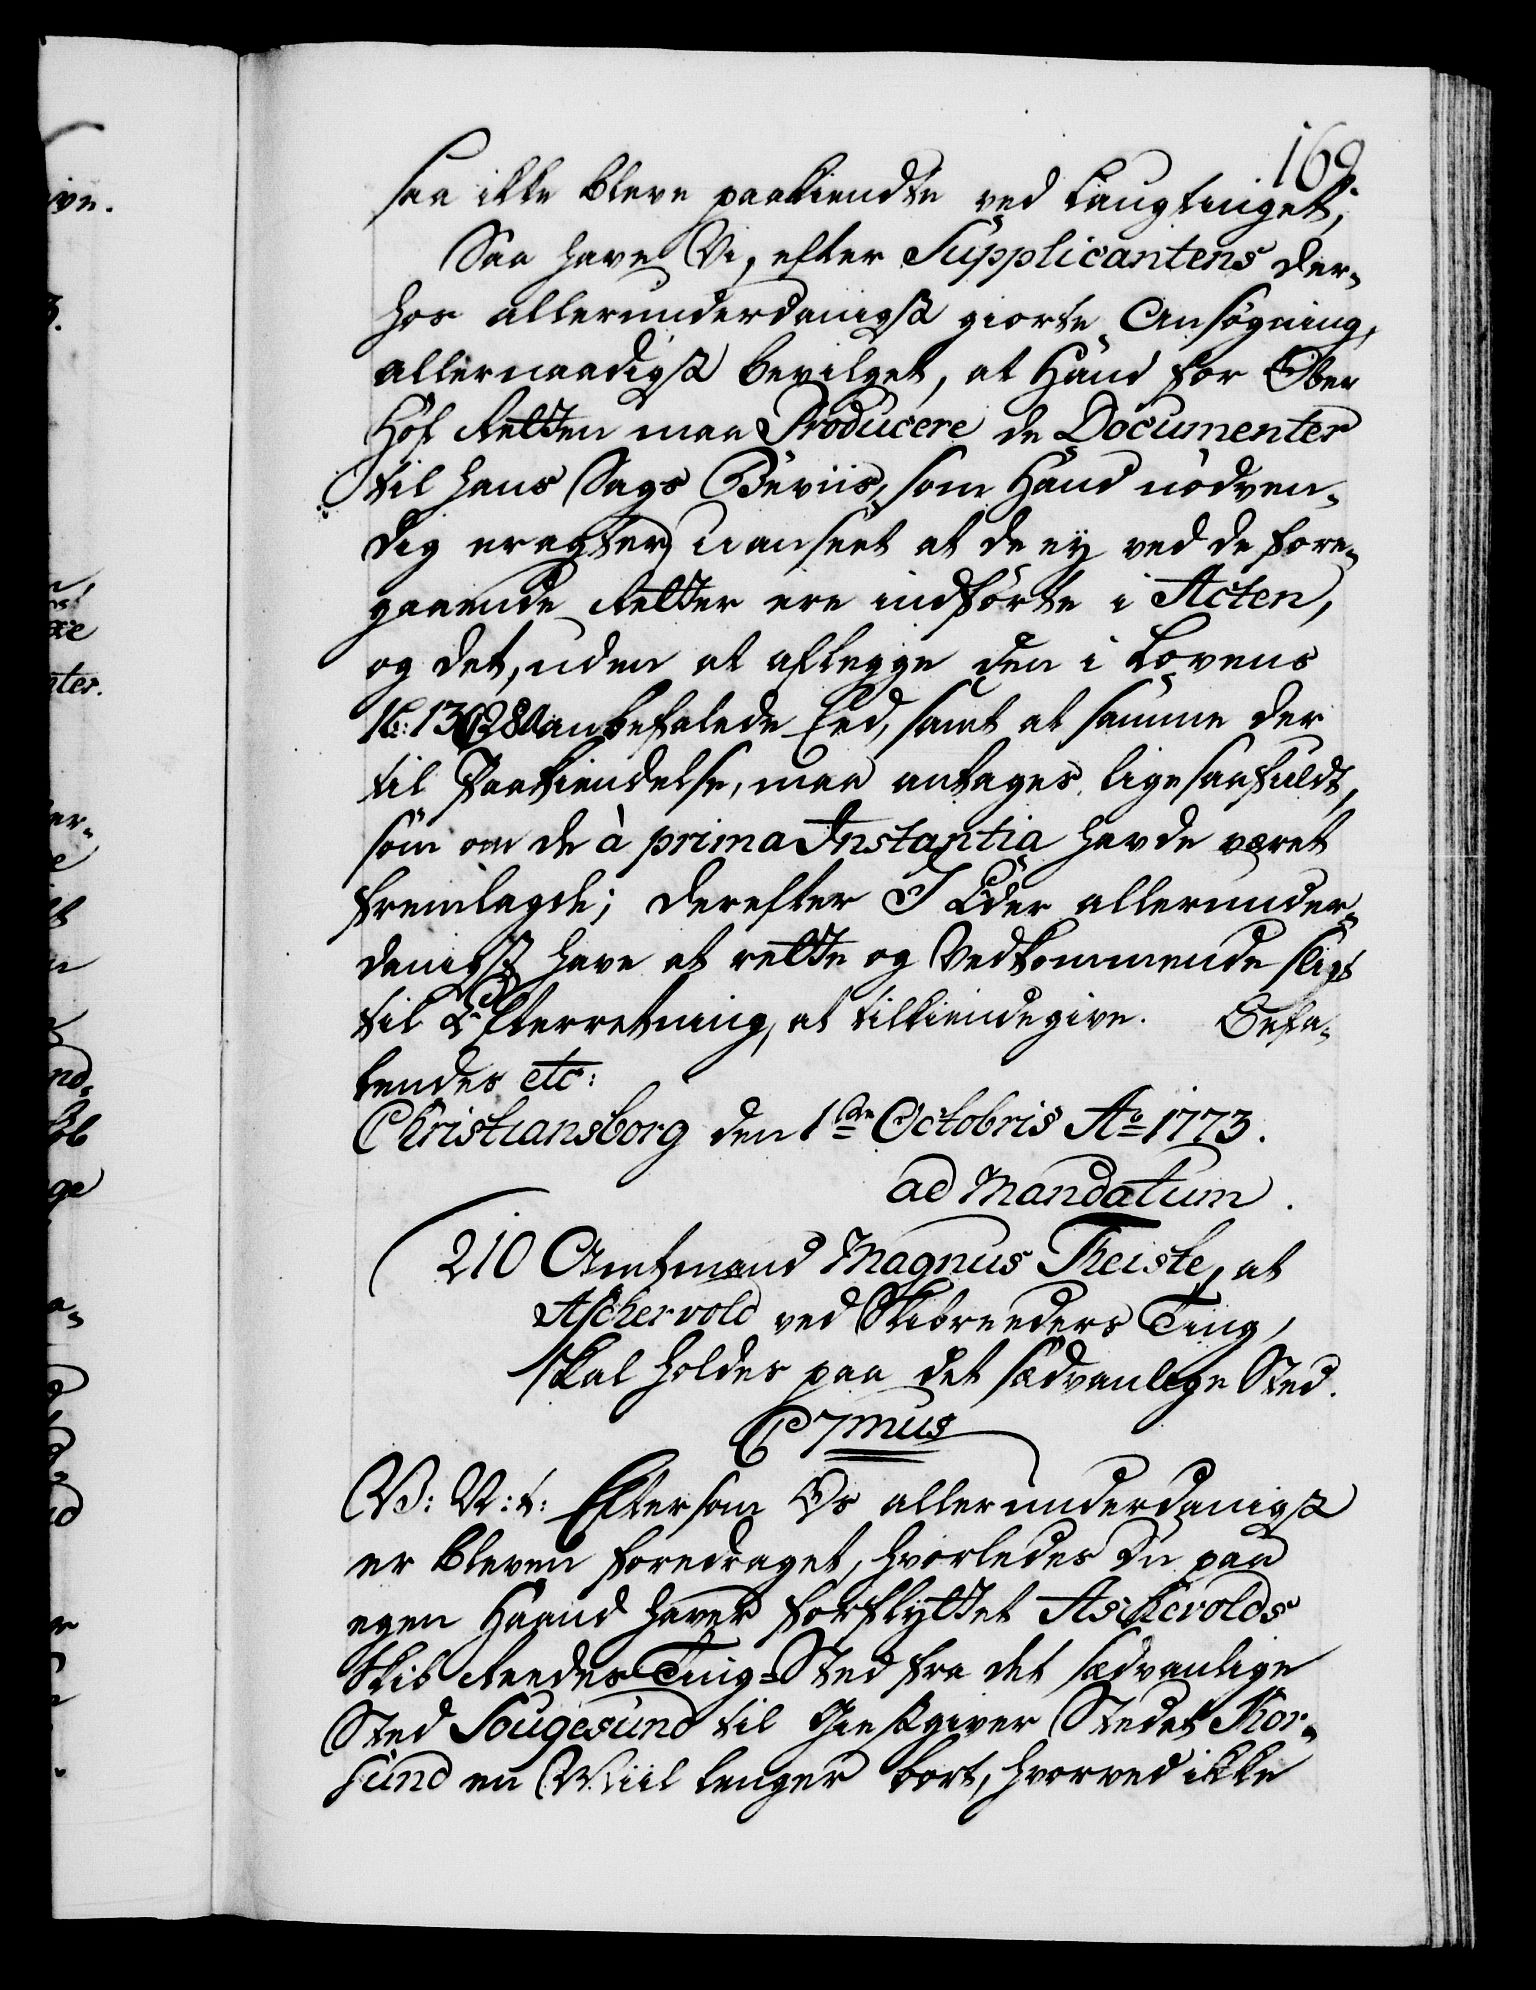 169
saa ikke bleve paakiendte ved Laugtinget,
Saa have Vi, efter Supplicantens der-
hos allerunderdanigst giorte Ansøgning,
allernaadigst bevilget, at Hand for Ober
Hof Retten maa Producere de Documenter
til hans Sags Beviis, som Hand nødven-
dig eragter, uanseet at de ey ved de fore-
gaaende Retter ere indførte i Acten,
og det, uden at aflegge den i Lovens
anbefalede Eed, samt at samme der
til Paakiendelse, maa antages ligesaafuldt,
som om de à prima Instantia havde været
fremlagde; Derefter I Eder allerunder-
danigst have at rette og Vedkommende sligt
til Efterretning, at tilkiendegive. Befa-
lendes etc:
Christiansborg den 1ste Octobris Ao 1773.
ad Mandatum.
210 Amtmand Magnus Theiste, at
Aschervold ved Skibreeders Ting,
skal holdes paa det sædvanlige Sted.
C 7mus
V: V: t: Eftersom Os allerunderdanigst
er bleven foredraget, hvorledes Du paa
egen Haand haver forflyttet Aschevolds
Skib Reedes Ting-Sted fra det sædvanlige
Sted Sougesund til Giestgiver Stedet Kor-
sund en Miil lenger bort, hvorved ikke